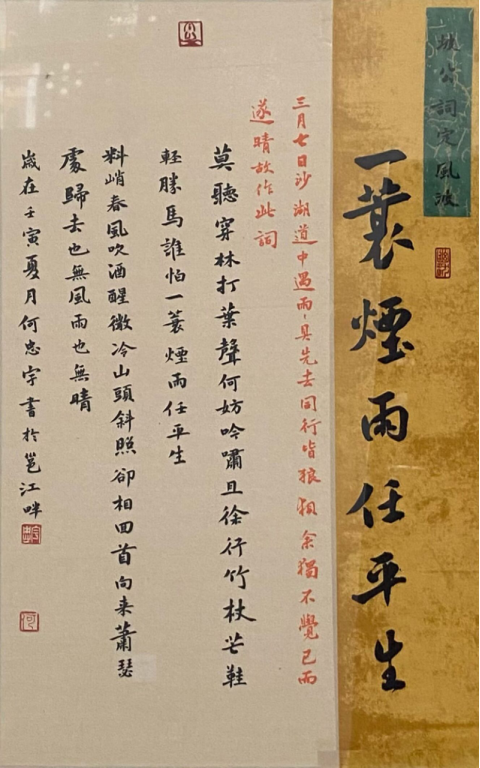 坡公詞定風波
一蓑煙雨任平生
三月七日沙湖道中遇雨〻具先去同行皆狼狽余獨不覺已而
遂晴故作此詞
莫聽穿林打葉聲何妨吟嘯且徐行竹杖芒鞋
輕勝馬誰怕一蓑煙雨任平生
料峭春風吹酒醒微冷山頭斜照卻相回首向来蕭瑟
處歸去也無風雨也無晴
歲在壬寅夏月何忠宇書於邕江畔
何